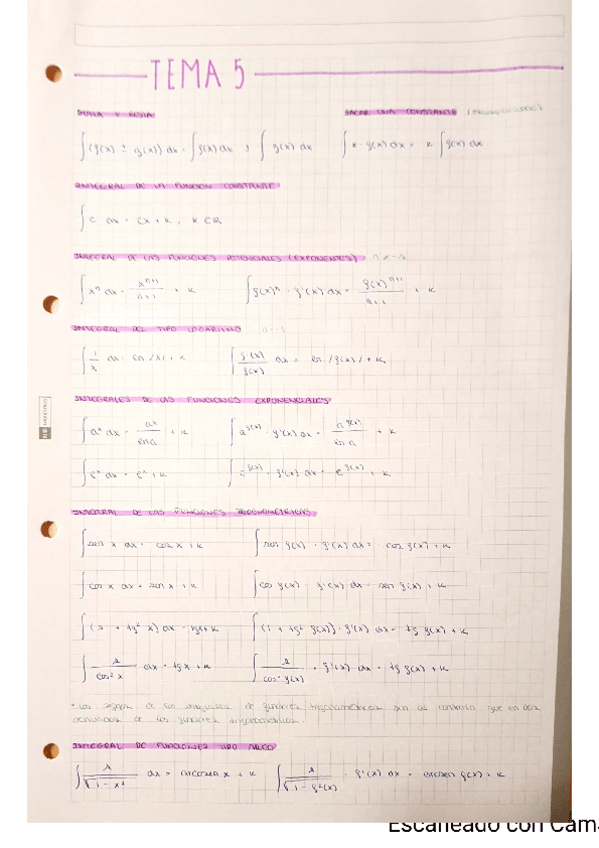 TEMA 5
SUMA Y RESTA SACAR UNA CONSTANTE
∫(f(x) ± g(x)) dx = ∫f(x) dx ± ∫g(x) dx ∫k·f(x) dx = k ∫f(x) dx
INTEGRAL DE LA FUNCIÓN CONSTANTE
∫c dx = cx + k, k ∈ ℝ
INTEGRAL DE LAS FUNCIONES POTENCIALES (EXPONENTES)
∫xⁿ dx = xⁿ⁺¹/n+1 + k ∫f(x)ⁿ · f'(x) dx = f(x)ⁿ⁺¹/n+1 + k
INTEGRAL DEL TIPO LOGARITMO
∫1/x dx = ln /x/ + k ∫f'(x)/f(x) dx = ln /f(x)/ + k
INTEGRALES DE LAS FUNCIONES EXPONENCIALES
∫aˣ dx = aˣ/ln a + k ∫a^f(x) · f'(x) dx = a^f(x)/ln a + k
∫eˣ dx = eˣ + k ∫e^f(x) · f'(x) dx = e^f(x) + k
INTEGRAL DE LAS FUNCIONES TRIGONOMÉTRICAS
∫sen x dx = cos x + k ∫sen f(x) · f'(x) dx = cos f(x) + k
∫cos x dx = sen x + k ∫cos f(x) · f'(x) dx = sen f(x) + k
∫(1 + tg² x) dx = tgx + k ∫(1 + tg² f(x)) · f'(x) dx = tg f(x) + k
∫1/cos² x dx = tg x + k ∫1/cos² f(x) · f'(x) dx = tg f(x) + k
* Los signos de las integrales de funciones trigonométricas son al contrario que en las
derivadas de las funciones trigonométricas.
INTEGRAL DE FUNCIONES TIPO ARCO
∫1/√1 - x² dx = arcosen x + k ∫1/√1 - f²(x) · f'(x) dx = arcsen f(x) + k
Escaneado con Cam